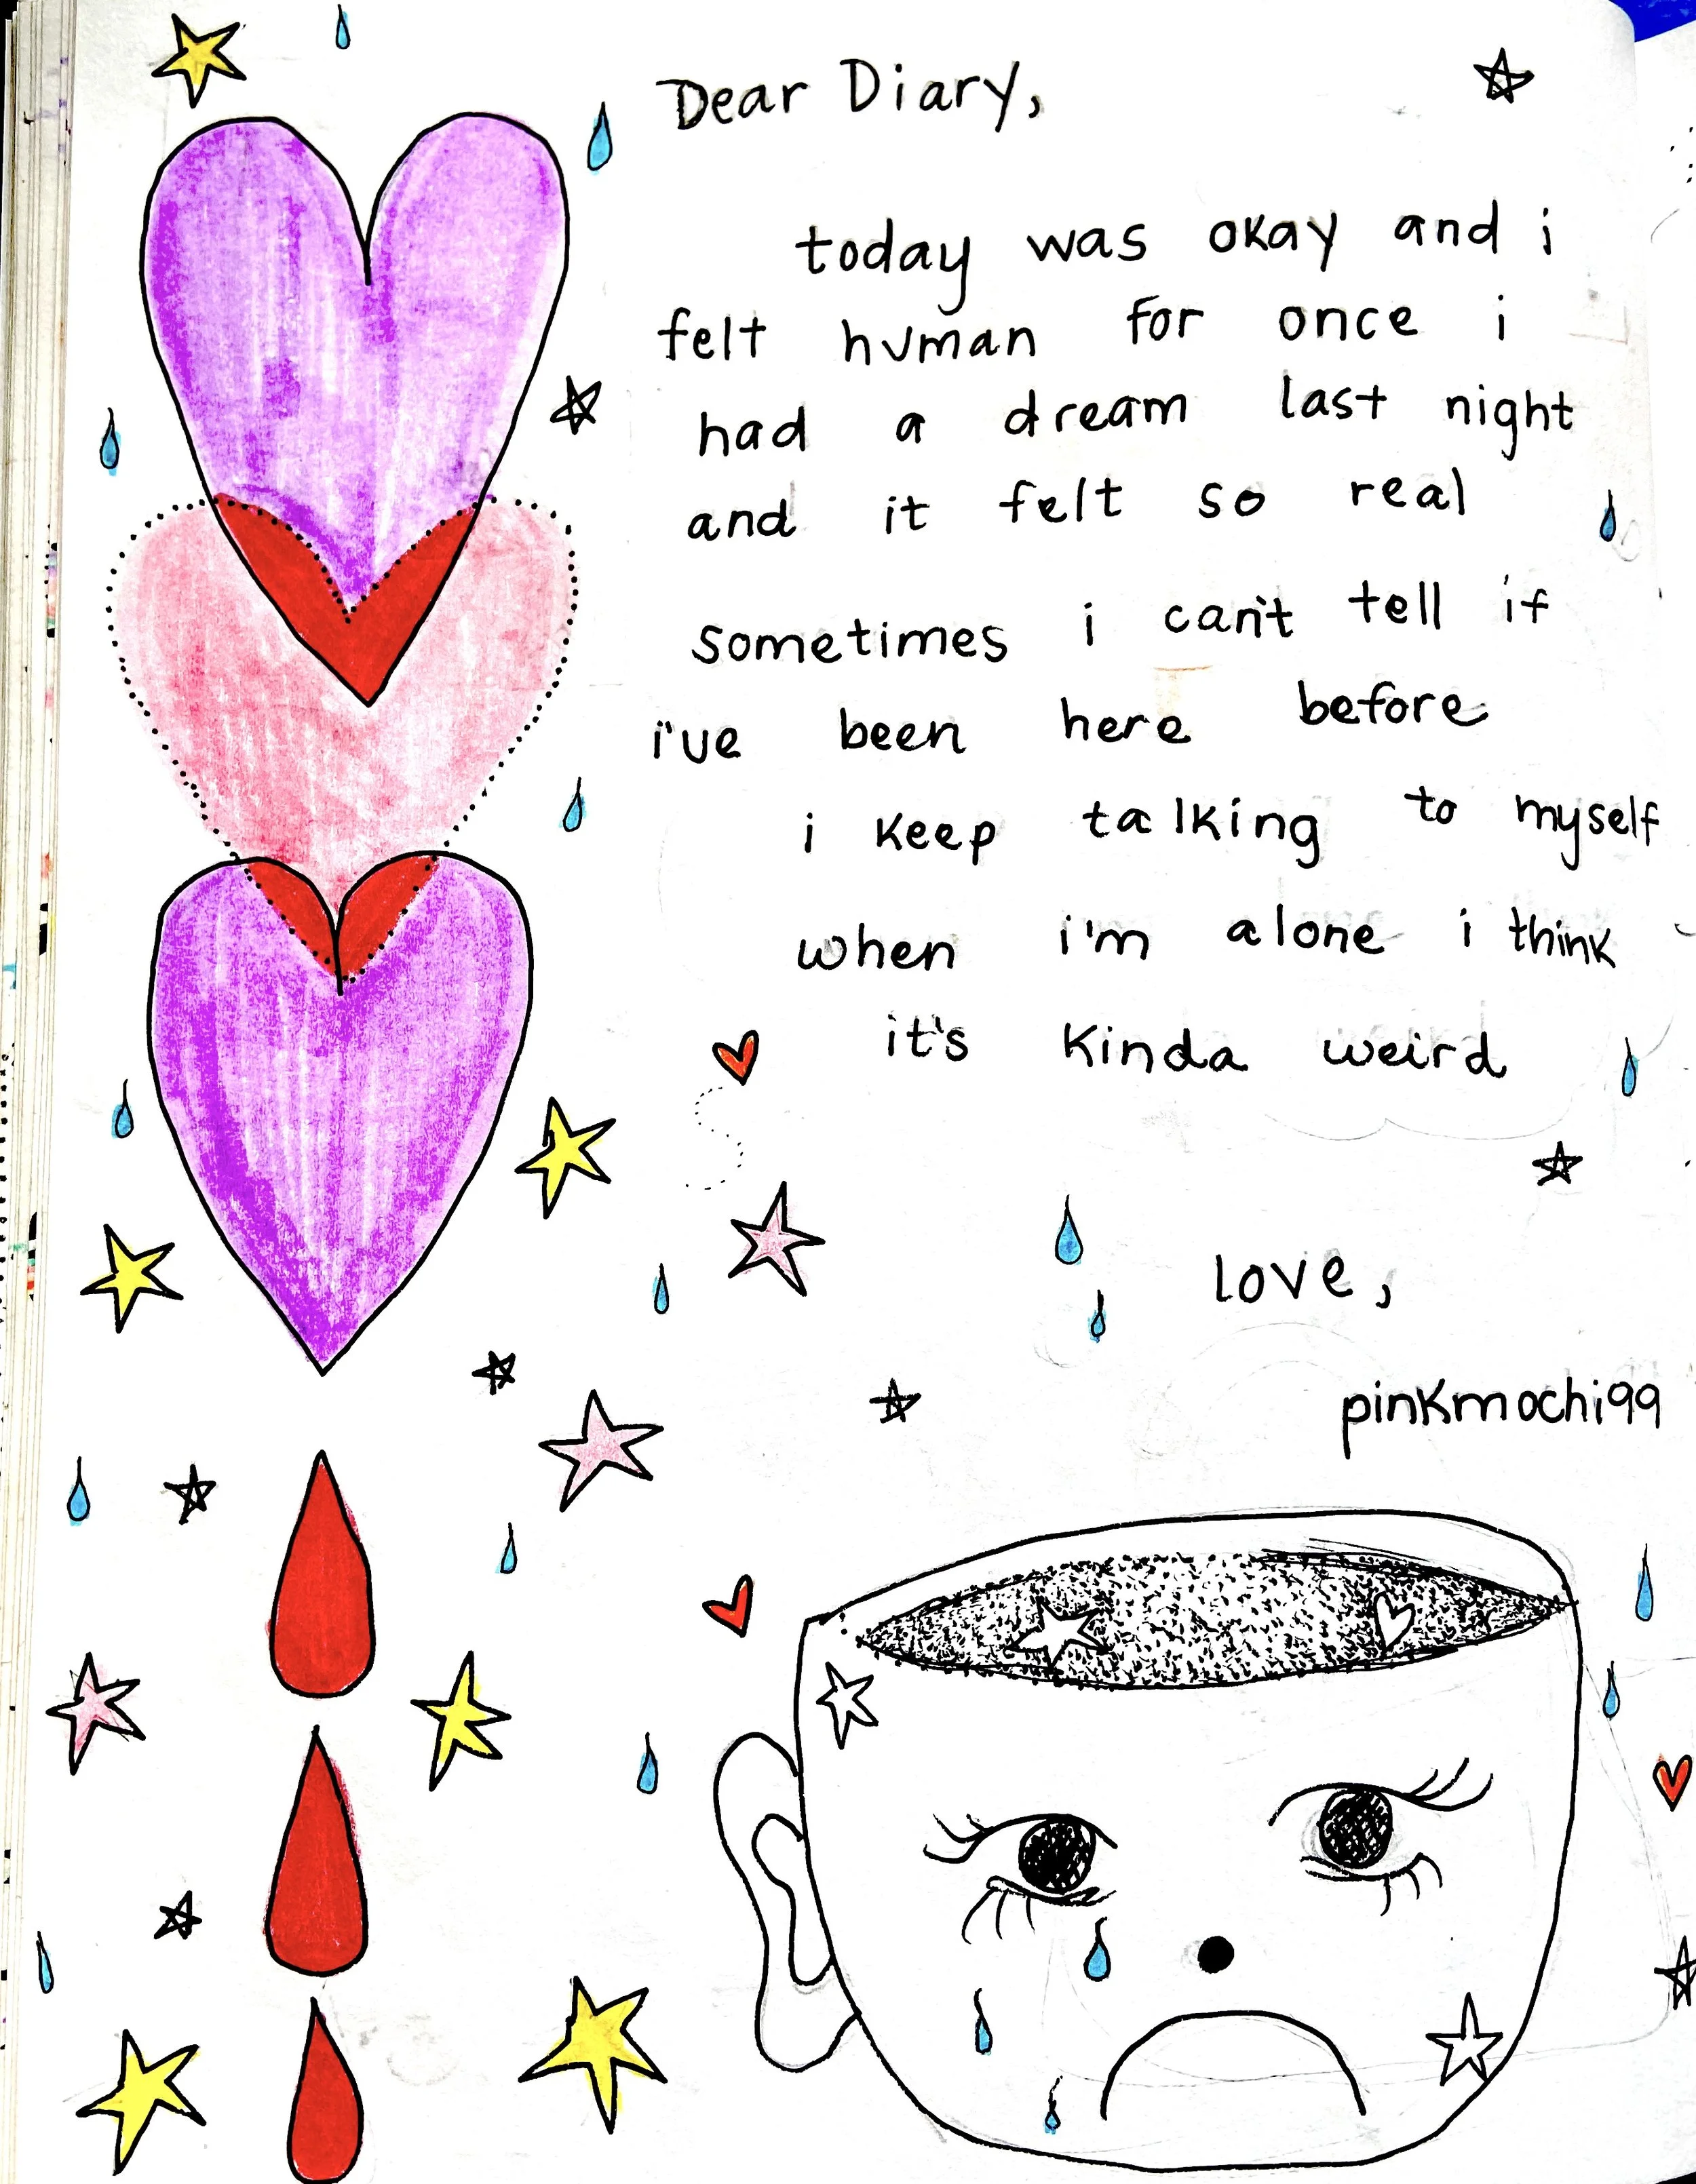 Dear Diary,
today was okay and i
felt human for once i
had a dream last night
and it felt so real
sometimes i can't tell if
i've been here before
i keep talking to myself
when i'm alone i think
it's kinda weird
love,
pinkmochi99